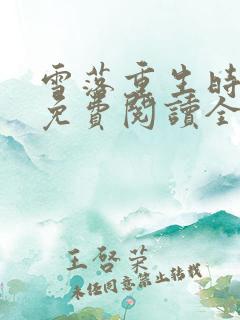 雪落重生時
免費閱讀全
王啓榮
未经同意禁止转载